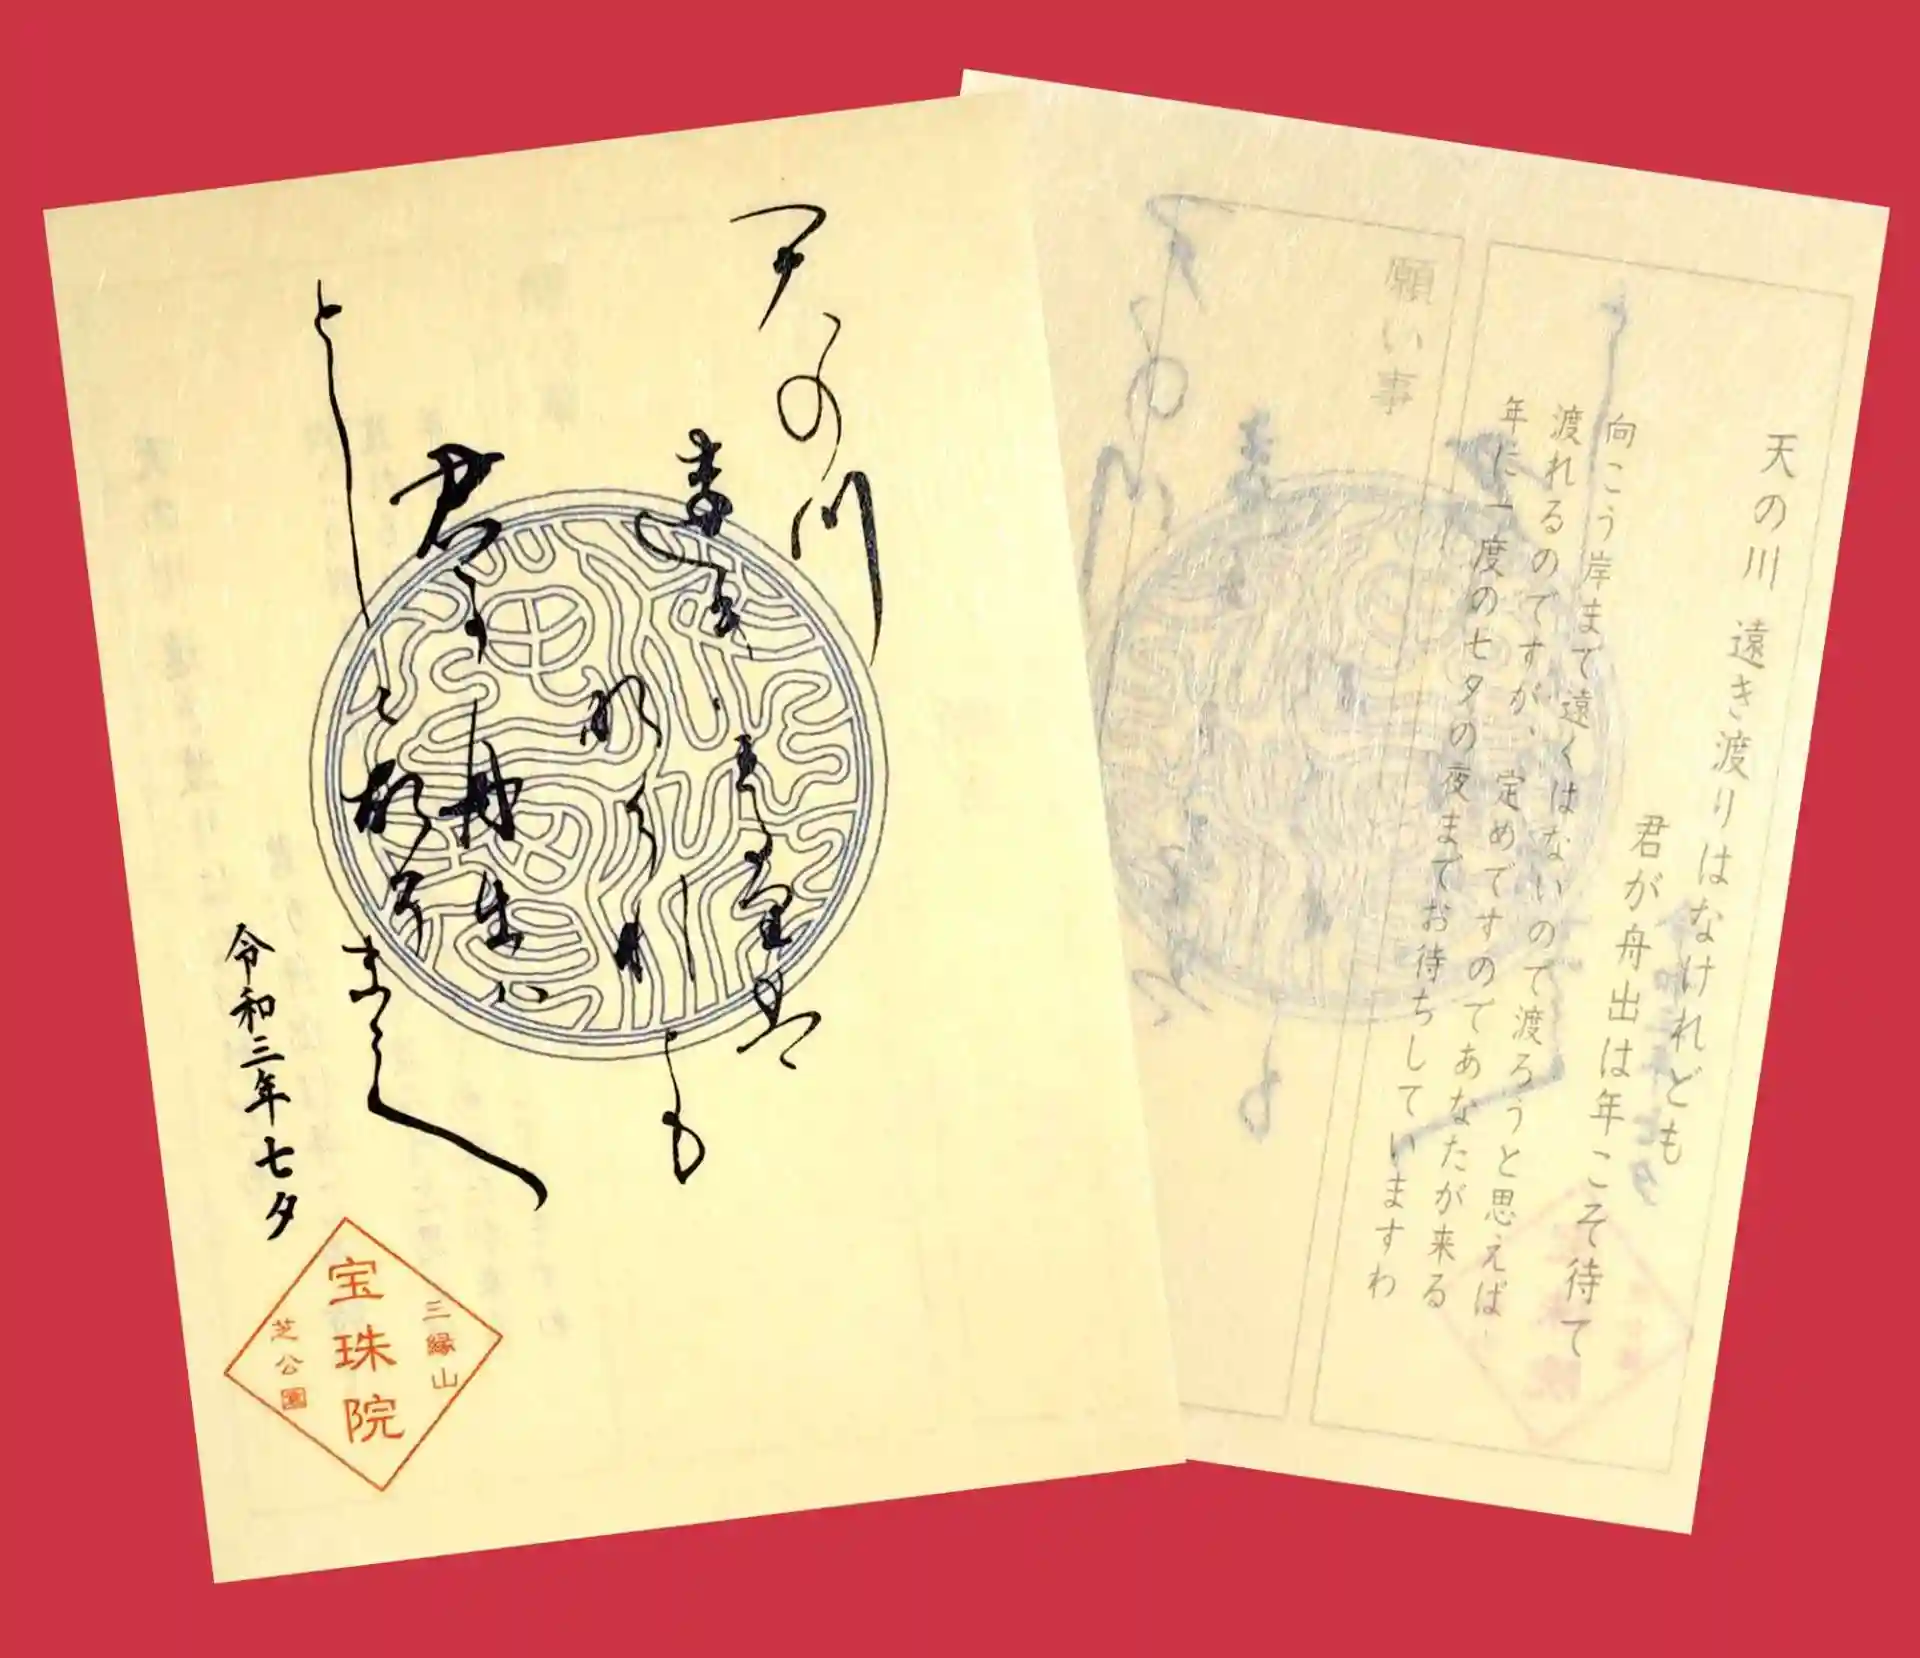 天の川
君
とし
令和三年七夕
三縁山
宝珠院
芝公園
天の川 遠き渡りはなけれども
君が舟出は年こそ待て
向こう岸まで遠くはないので渡ろうと思えば
渡れるのですが、定めですのであなたが来る
年に一度の七夕の夜までお待ちしていますわ
願い事